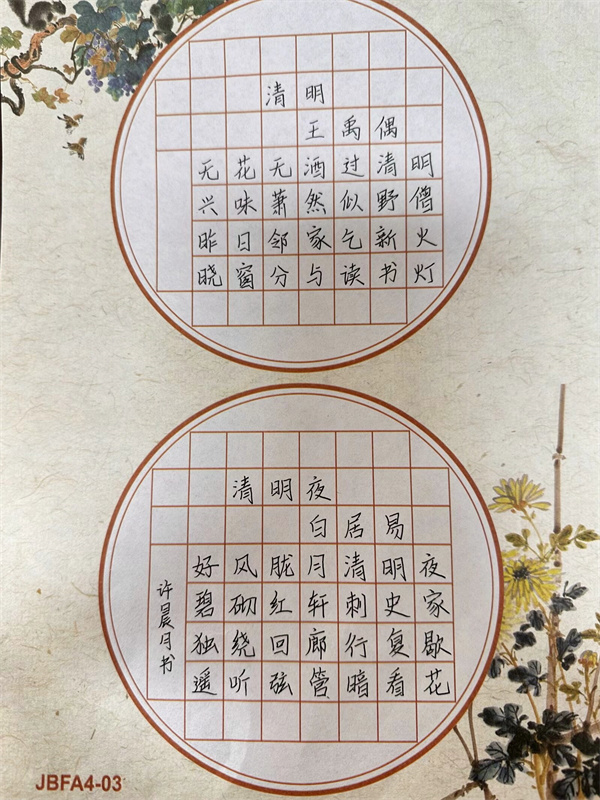 清明
王禹偶
无花无酒过清明
兴味萧然似野僧
昨日邻家乞新火
晓窗分与读书灯
清明夜
白居易
好风胧月清明夜
碧砌红轩刺史家
独绕回廊行复歇
遥听弦管暗看花
许晨月书
JBFA4-03